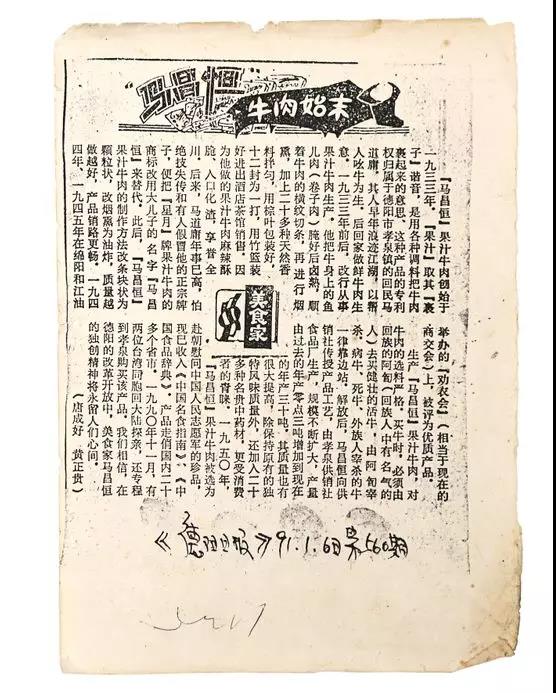 “马昌恒”
牛肉始末
『马昌恒』果汁牛肉创始于
一九三三年，『果汁』取其『裹
子』谐音，是用各种调料把牛肉
裹起来的意思。这种产品的专利
权归属于德阳市孝泉镇的回民马
道庸，其人早年浪迹江湖，以帮
人吆牛为生，后回家做鲜牛肉生
意。一九三三年前后，改行从事
果汁牛肉生产。他把牛身上的鱼
儿肉（卷子肉）腌好后卤熟，顺
着牛肉的横纹切条，再进行烟
熏，加上二十多种天然香
料拌匀，用棕叶包装好，
十二封为一打，用竹篮装
好进出酒店茶馆销售，因
为他做的果汁牛肉麻辣酥
脆，入口化渣，享誉全
川。后来，马道庸年事已高，怕
绝技失传和有人假冒他的正宗牌
子，便把『星月』牌果汁牛肉的
商标改用大儿子的名字『马昌
恒』来替代。此后，『马昌恒』
果汁牛肉的制作方法改条块状为
颗粒状，改烟熏为油炸，质量越
做越好，产品销路更畅。一九四
四年、一九四五年在绵阳和江油
美食家
举办的『劝农会』（相当于现在的
商交会）上，被评为优质产品。
生产『马昌恒』果汁牛肉，对
牛肉的选料严格。买牛时，必须由
回族的阿訇（回族人中有名气的
人）去买健壮的活牛，由阿訇宰
杀，病牛、死牛、外族人宰杀的牛
一律靠边站。解放后，马昌恒向供
销社传授产品工艺，由孝泉供销社
食品厂生产，规模不断扩大，产量
由过去的年产零点三吨增加到现在
的年产三十吨，其质量也有
很大提高，除保持原有的独
特风味质量外，还加入二十
多种名贵中药材，更受消费
者的青睐。一九五〇年，
『马昌恒』果汁牛肉被选为
赴朝慰问中国人民志愿军的珍品。
现已收入《中国名食指南》、《中
国食品辞典》，产品走俏国内二十
多个省市。一九九〇年十一月，有
两位台湾同胞回大陆探亲，还专程
到孝泉购买该产品。我们相信，在
德阳的改革开放中，美食家马昌恒
的独创精神将永留人们心间。
（唐成好　黄正贵）
《德阳日报》91.1.6日第560期